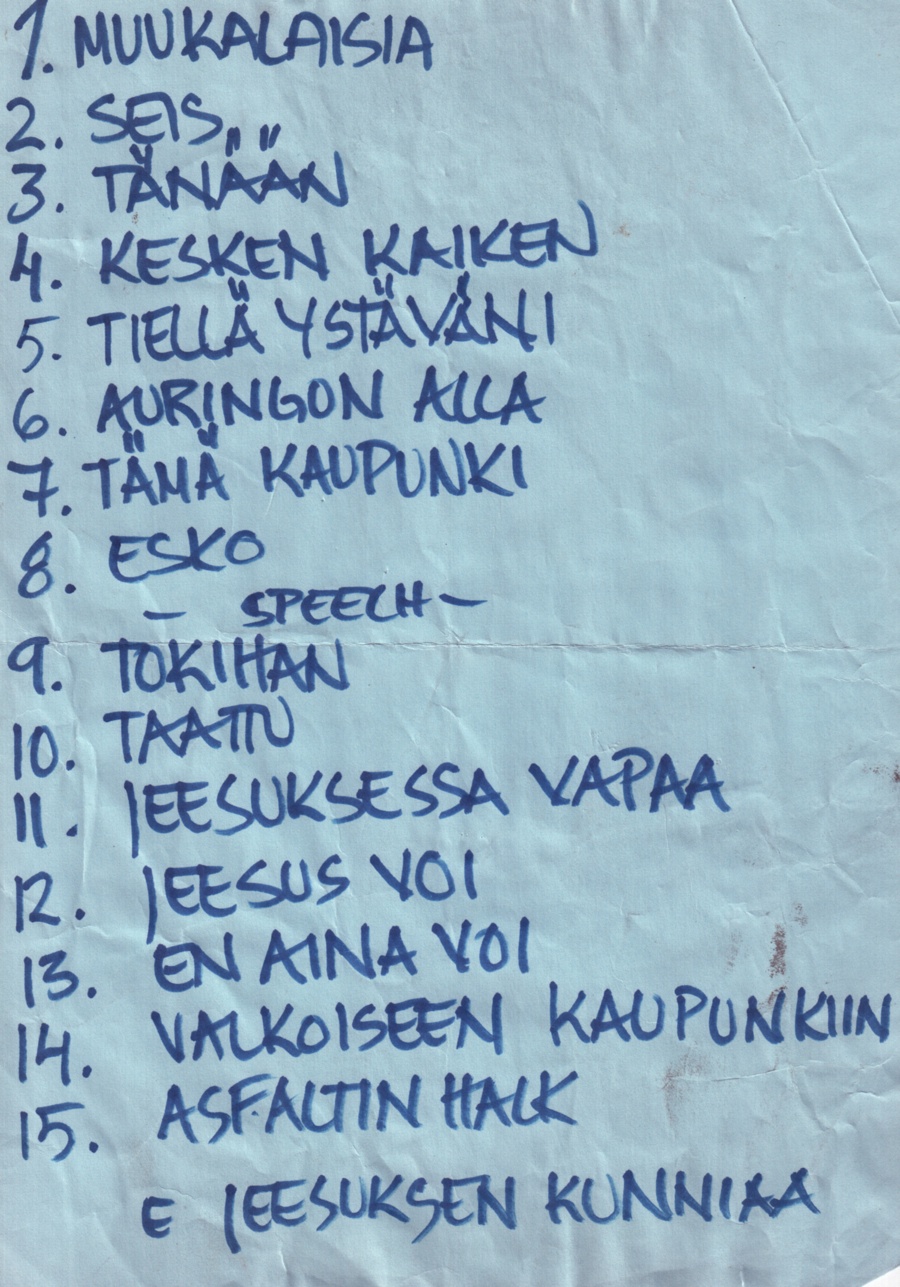 1. MUUKALAISIA
2. SEIS
3. TÄNÄÄN
4. KESKEN KAIKEN
5. TIELLÄ YSTÄVÄNI
6. AURINGON ALLA
7. TÄMÄ KAUPUNKI
8. ESKO
- SPEECH -
9. TOKIHAN
10. TAATTU
11. JEESUKSESSA VAPAA
12. JEESUS VOI
13. EN AINA VOI
14. VALKOISEEN KAUPUNKIIN
15. ASFALTIN HALK
E JEESUKSEN KUNNIAA